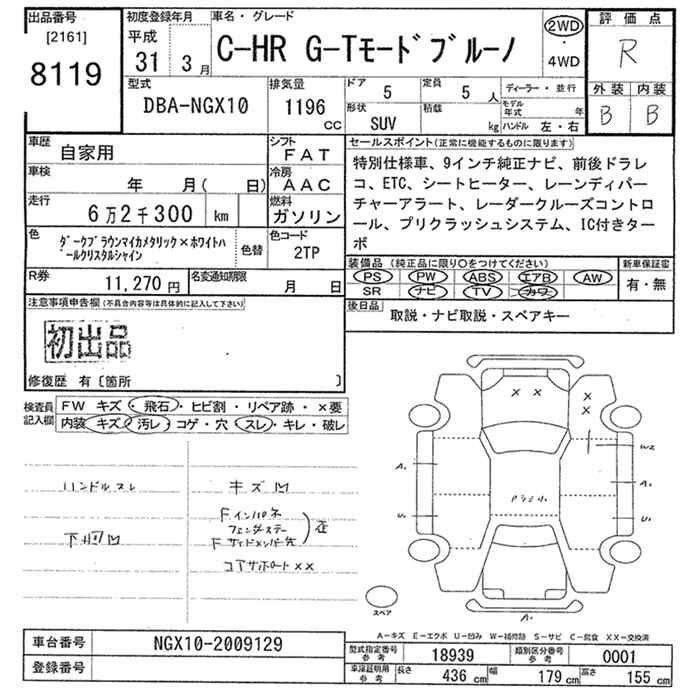 出品番号
[2161]
8119
初度登録年月
平成
31 3月
車名・グレード
C-HR G-Tモードブルーノ
2WD
・
4WD
評価点
R
型式
DBA-NGX10
排気量
1196
cc
ドア
5
定員
5 人
ディーラー・並行
形状
SUV
積載
kg
モデル年式 年
ハンドル 左・右
外装 内装
B B
車歴
自家用
シフト
FAT
車検
年 月( 日)
冷房
AAC
走行
6万2千300 km
燃料
ガソリン
色
ダークブラウンマイカメタリック×ホワイトパ
ールクリスタルシャイン
色替
色コード
2TP
R券
11,270円
名変通知期限
月 日
セールスポイント(正常に機能するものに限ります)
特別仕様車、9インチ純正ナビ、前後ドラレ
コ、ETC、シートヒーター、レーンディパー
チャーアラート、レーダークルーズコントロ
ール、プリクラッシュシステム、IC付きター
ボ
装備品(純正品に限り○をつけてください)
PS PW ABS エアB AW
SR ナビ TV カワ
新車保証書
有・無
後日品
取説・ナビ取説・スペアキー
注意事項申告欄(不具合内容等は具体的に記入して下さい)
初出品
修復歴 有〔箇所 〕
検査員
記入欄
FW キズ・飛石・ヒビ割・リペア跡・×要
内装 キズ 汚レ・コゲ・穴 スレ・キレ・破レ
ハンドルスレ
キズ凹
Fインパネ
フェンダステー
Fサイドメンバー先
コアサポート××
下回凹
× ×
×
×
W2
A1
A1
U1
U1
スペア
A-キズ E-エクボ U-凹み W-補修跡 S-サビ C-腐食 XX-交換済
車台番号
NGX10-2009129
登録番号
型式指定番号
参考
18939
類別区分番号
参考
0001
車庫証明用
参考
長さ 436 cm
幅 179 cm
高さ 155 cm